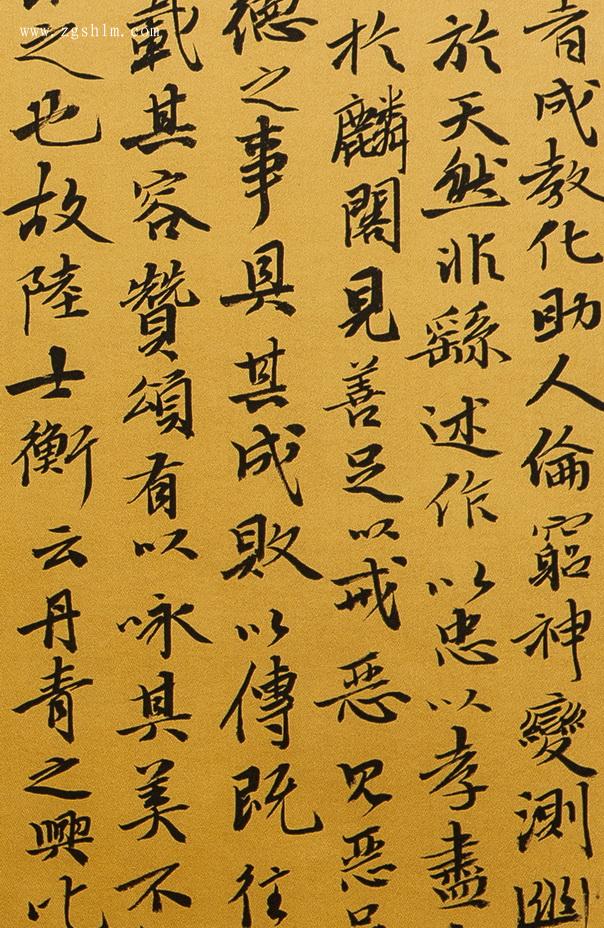 www.zgshlm.com
者成教化助人倫窮神變測幽
於天然非繇述作以忠以孝盡
於麟閣見善足以戒惡見惡足
德之事具其成敗以傳既往
載其容贊頌有以咏其美不
之也故陸士衡云丹青之興比